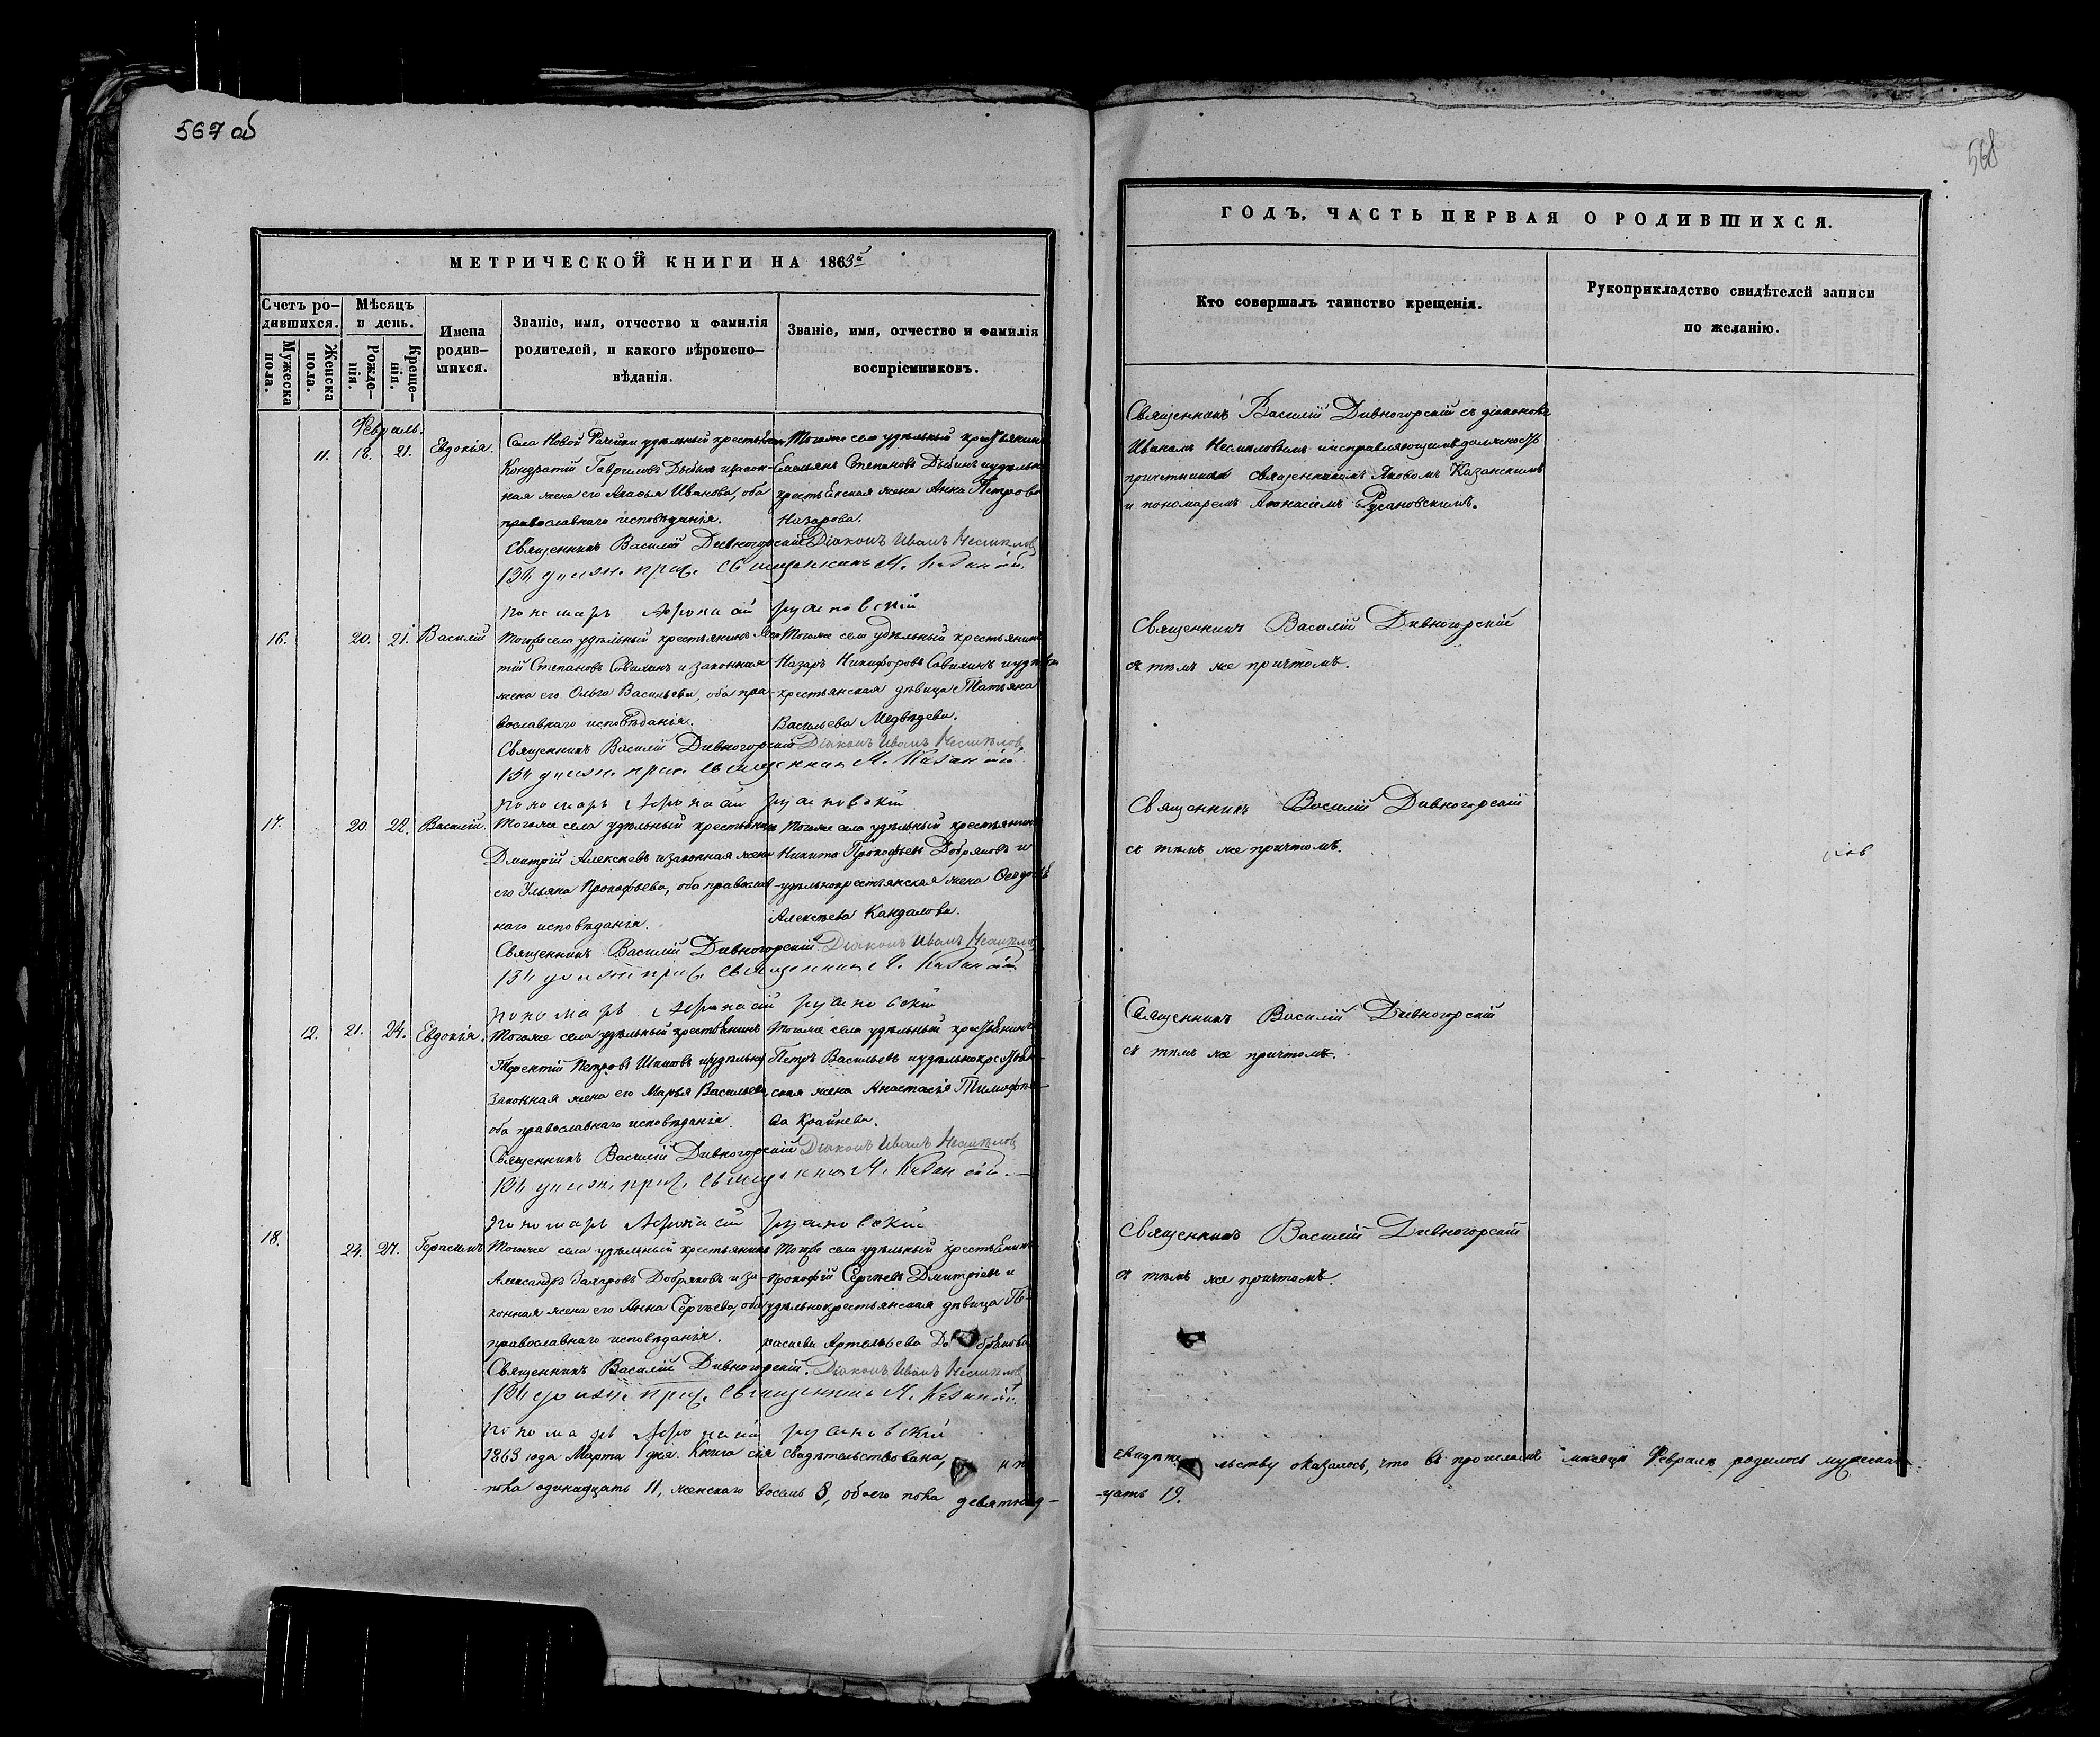 567 об
МЕТРИЧЕСКОЙ КНИГИ НА 1863й
Счетъ ро-
дившихся.
Мужеска
пола.
Женска
пола.
Мѣсяцъ
и день.
Рожде-
нія.
Креще-
нія.
Имена
родив-
шихся.
Званіе, имя, отчество и фамилія
родителей, и какого вѣроиспо-
вѣданія.
Званіе, имя, отчество и фамилія
воспріемниковъ.
Февраль.
11. 18. 21. Евдокія.
Села Новой Рачейки удѣльный крестьянинъ
Кондратій Гавриловъ Дыбинъ и закон-
ная жена его Агафья Иванова, оба
православнаго исповѣданія.
Тогоже села удѣльный крестьянинъ
Емельянъ Степановъ Дыбинъ и удѣльно
крестьянская жена Анна Петрова
Назарова.
Священникъ Василій Дивногорскій Діаконъ Иванъ Несмѣловъ
Священникъ Казанскій
пономарь Афонасій Русановскій
16. 20. 21. Василій
Тогоже села удѣльный крестьянинъ
тій Степановъ Савихинъ и законная
жена его Ольга Васильева, оба пра-
вославнаго исповѣданія.
Тогоже села удѣльный крестьянинъ
Назаръ Никифоровъ Савихинъ и удѣльно
крестьянская дѣвица Татьяна
Васильева Медвѣдева.
Священникъ Василій Дивногорскій Діаконъ Иванъ Несмѣловъ
Священникъ Казанскій
пономарь Афонасій Русановскій
17. 20. 22. Василій.
Тогоже села удѣльный крестьянинъ
Дмитрій Алексѣевъ и законная жена
его Ульяна Прокофьева, оба православ-
наго исповѣданія.
Тогоже села удѣльный крестьянинъ
Никита Прокофьевъ Добряковъ и
удѣльнокрестьянская жена
Алексѣева Кандалова.
Священникъ Василій Дивногорскій. Діаконъ Иванъ Несмѣловъ
Священникъ Казанскій
пономарь Афонасій Русановскій
12. 21. 24. Евдокія.
Тогоже села удѣльный крестьянинъ
Терентій Петровъ и удѣльно
законная жена его Марья Васильева,
оба православнаго исповѣданія.
Тогоже села удѣльный крестьянинъ
Петръ Васильевъ и удѣльнокрестьян-
ская жена Анастасія Тимофѣе-
ва Крайнева.
Священникъ Василій Дивногорскій Діаконъ Иванъ Несмѣловъ
Священникъ Казанскій
пономарь Афонасій Русановскій
18. 24. 27. Герасимъ
Тогоже села удѣльный крестьянинъ
Александръ Захаровъ Добряковъ и за-
конная жена его Анна Сергѣева, оба
православнаго исповѣданія.
Тогоже села удѣльный крестьянинъ
Прокофій Сергѣевъ Дмитріевъ и
удѣльнокрестьянская дѣвица Па-
раскева Артемьева Добрякова
Священникъ Василій Дивногорскій. Діаконъ Иванъ Несмѣловъ
Священникъ Казанскій
пономарь Афонасій Русановскій
1863 года Марта 1 дня. Книга сія свидѣтельствована,
пола одинадцать 11, женскаго восемь 8, обоего пола девятнад-
568
ГОДЪ, ЧАСТЬ ПЕРВАЯ О РОДИВШИХСЯ.
Кто совершалъ таинство крещенія.
Рукоприкладство свидѣтелей записи
по желанію.
Священникъ Василій Дивногорскій съ діакономъ
Иваномъ Несмѣловымъ исправляющимъ должность
причетника священникомъ Казанскимъ
и пономаремъ Афонасіемъ Русановскимъ.
Священникъ Василій Дивногорскій
съ тѣмъ же причтомъ.
Священникъ Василій Дивногорскій
съ тѣмъ же причтомъ.
Священникъ Василій Дивногорскій
съ тѣмъ же причтомъ.
Священникъ Василій Дивногорскій
съ тѣмъ же причтомъ.
свидѣтельству оказалось, что въ прошломъ мѣсяцѣ Февралѣ родилось мужеска
-цать 19.